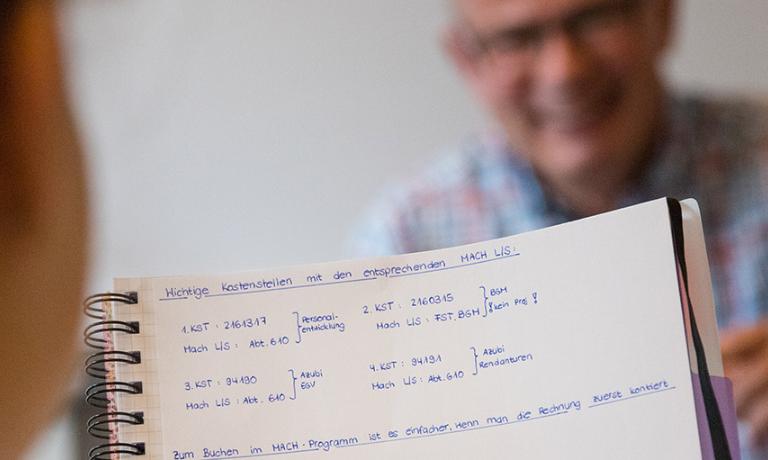 Wichtige Kostenstellen mit den entsprechenden MACH L/S:
1. KST : 2161317 } Personal-
entwicklung
Mach L/S : Abt. 610
2. KST : 2160315 } BGM
! kein Proj !
Mach L/S : FST. BGM
3. KST : 94190 } Azubi
EGV
Mach L/S : Abt. 610
4. KST : 94191 } Azubi
Rendanturen
Mach L/S : Abt. 610
Zum Buchen im MACH-Programm ist es einfacher, wenn man die Rechnung zuerst kontiert.